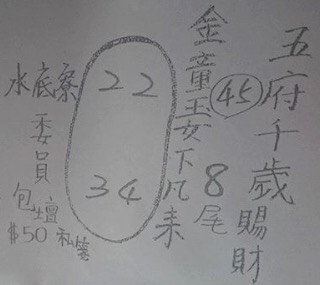 五府千歲賜財
金童玉女下凡来
45
8尾
22
34
水底寮
委員
包壇
$50
私簽